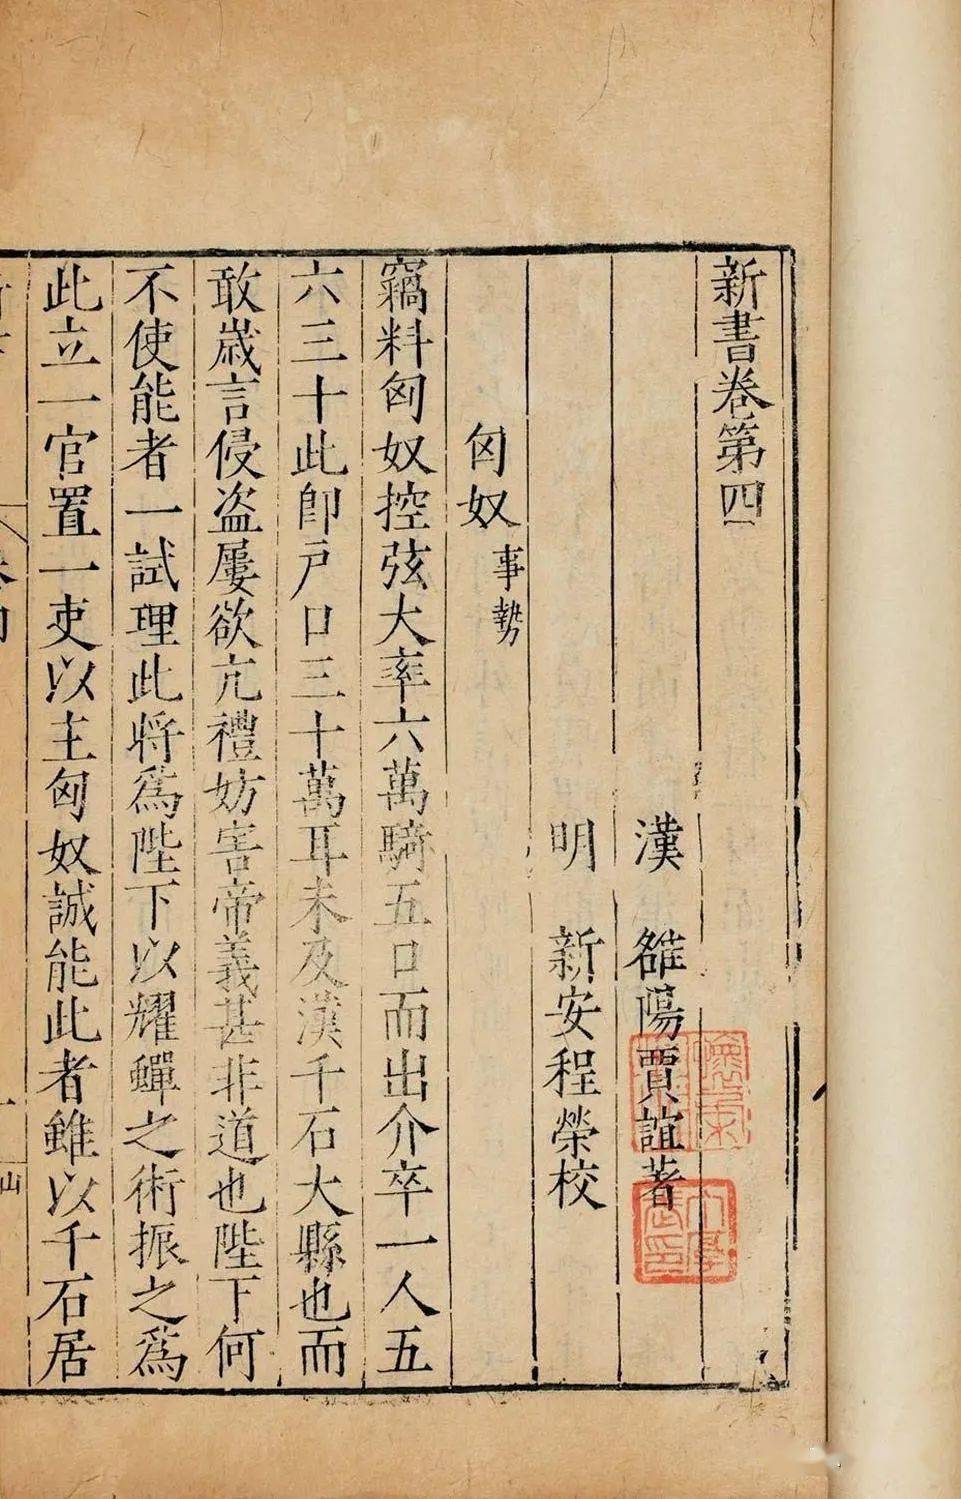 新書卷第四
漢 雒陽賈誼著
明 新安程榮校
匈奴 事勢
竊料匈奴控弦大率六萬騎五口而出介卒一人五
六三十此卽戶口三十萬耳未及漢千石大縣也而
敢歲言侵盗屢欲亢禮妨害帝義甚非道也陛下何
不使能者一試理此將爲陛下以耀蟬之術振之爲
此立一官置一吏以主匈奴誠能此者雖以千石居